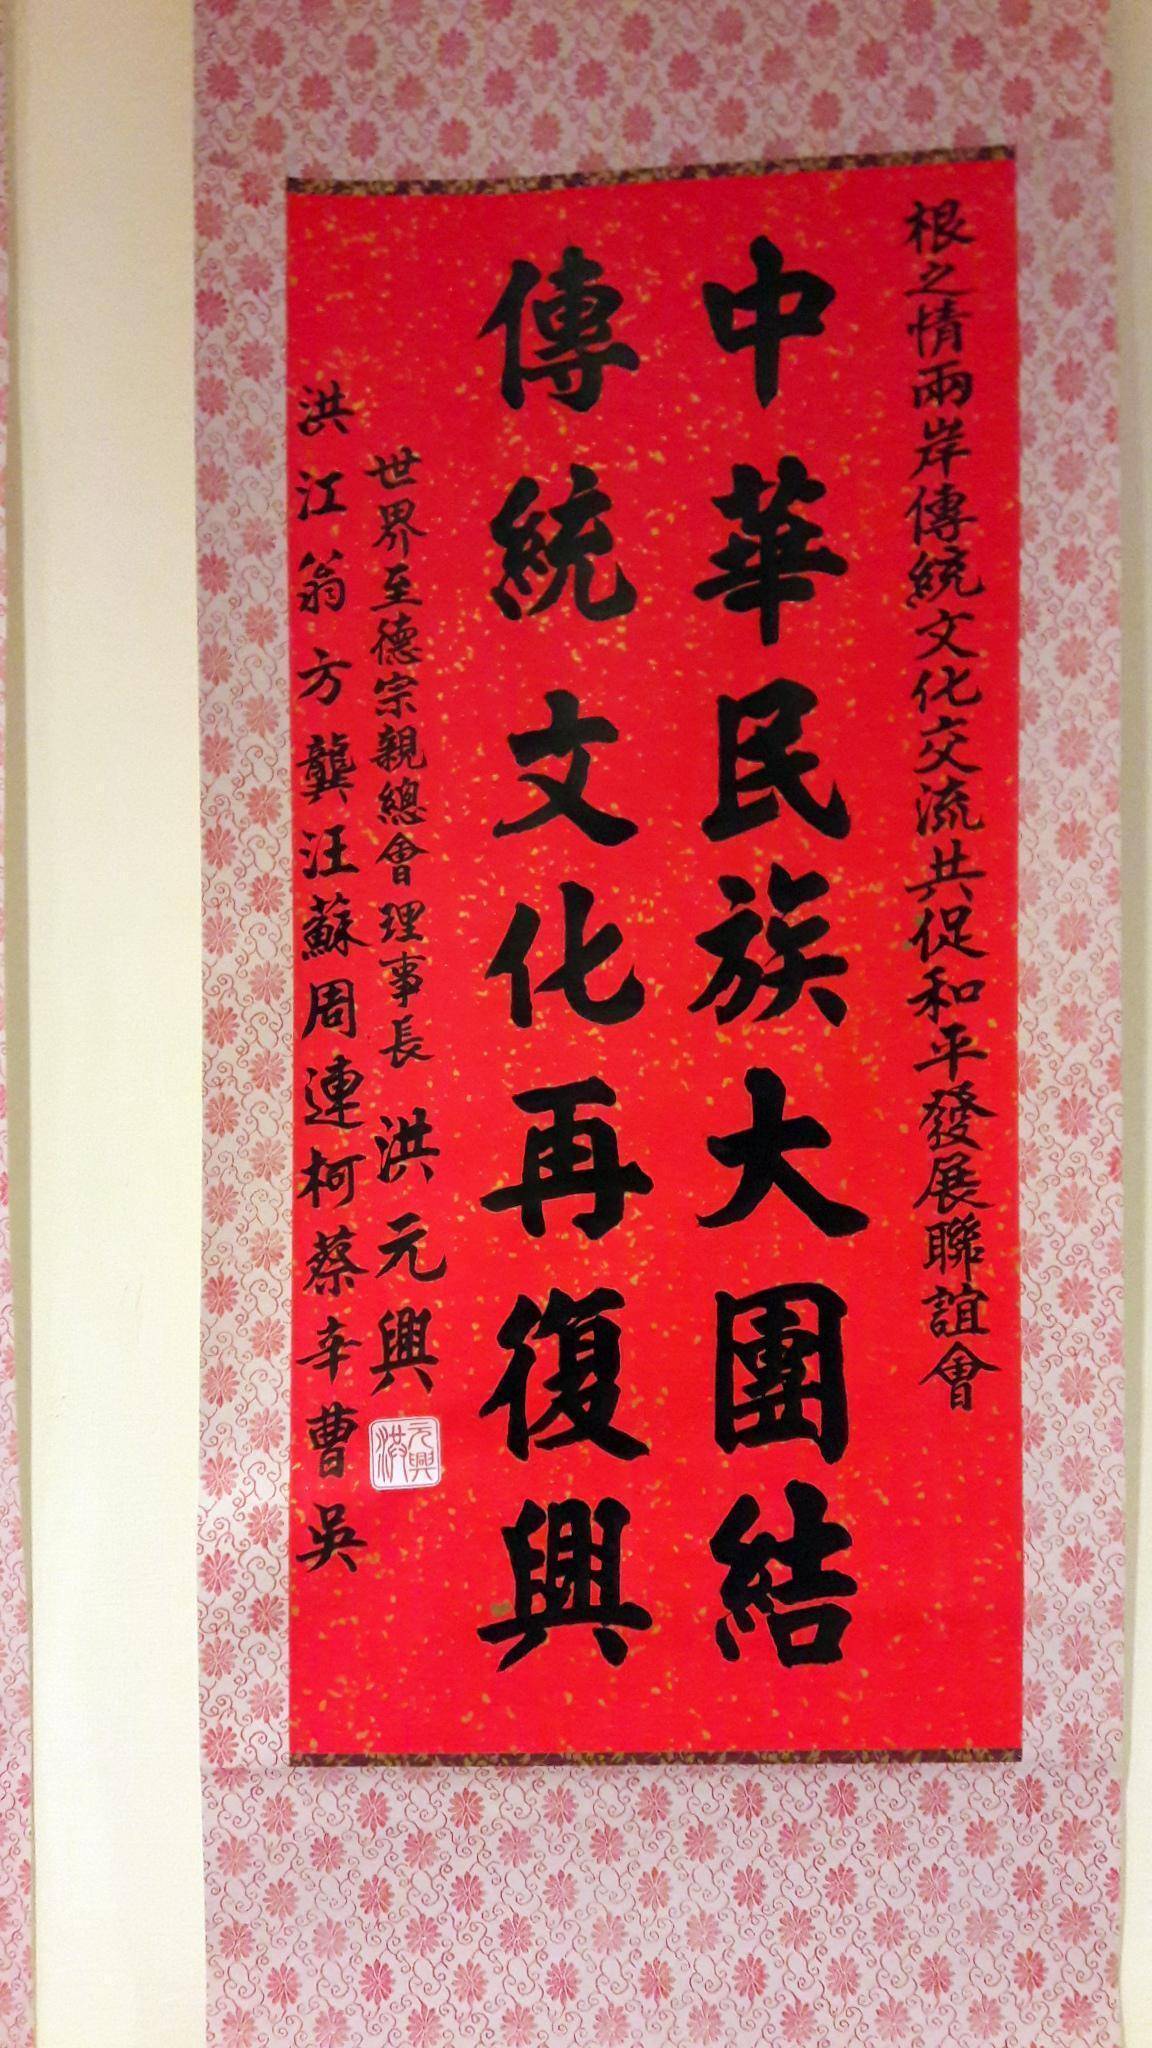 根之情兩岸傳統文化交流共促和平發展聯誼會
中華民族大團結
傳統文化再復興
世界至德宗親總會理事長 洪元興
元興
洪
洪江翁方龔汪蘇周連柯蔡辛曹吳